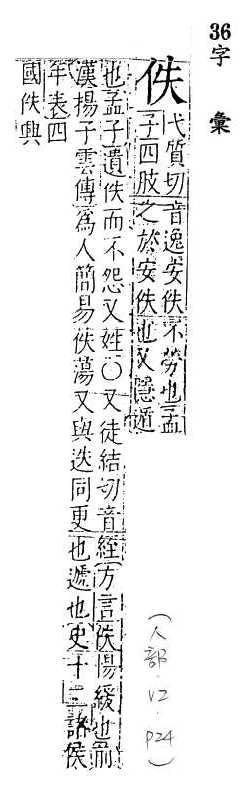 36字 彙
佚 弋質切音逸安佚不勞也孟
子四肢之於安佚也又隱遁
也孟子遺佚而不怨又姓〇又徒結切音絰方言佚惕緩也前
漢揚子雲傳爲人簡易佚蕩又與迭同更也遞也史十二諸侯
年表四
國佚興
(人部.V2.P24)